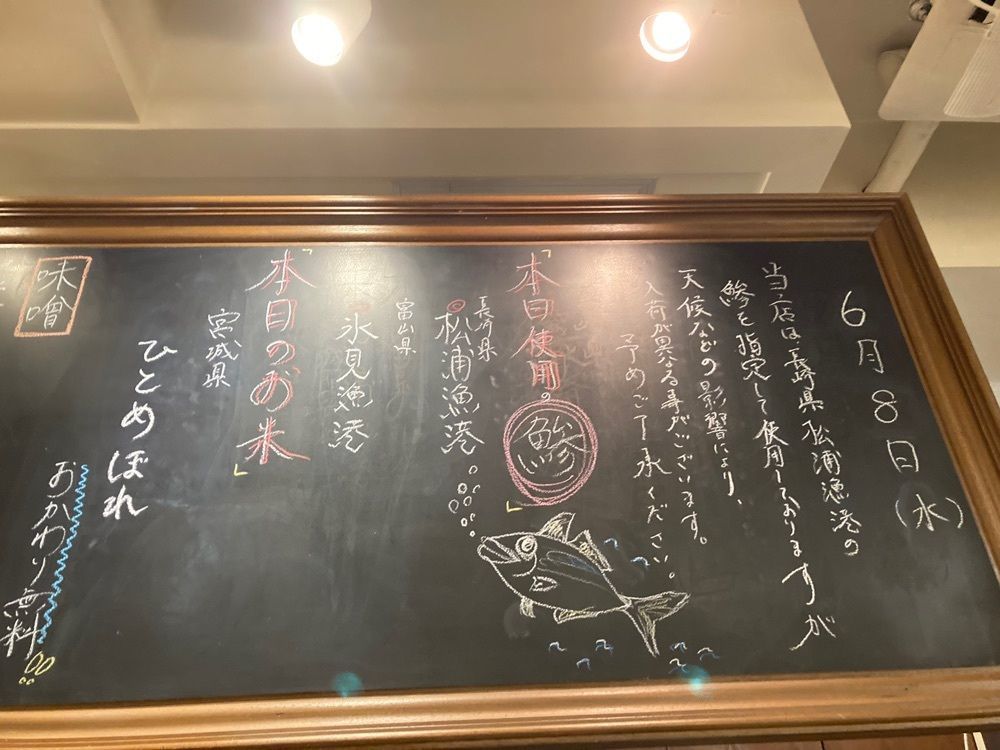 6月8日(水)
当店は、長崎県松浦漁港の
鯵を指定して使用しておりますが
天候などの影響により、
入荷が異なる事がございます。
予めご了承ください。
「本日使用の鯵」
長崎県
◎松浦漁港
富山県
氷見漁港
「本日のお米」
宮城県
ひとめぼれ
おかわり無料
味噌